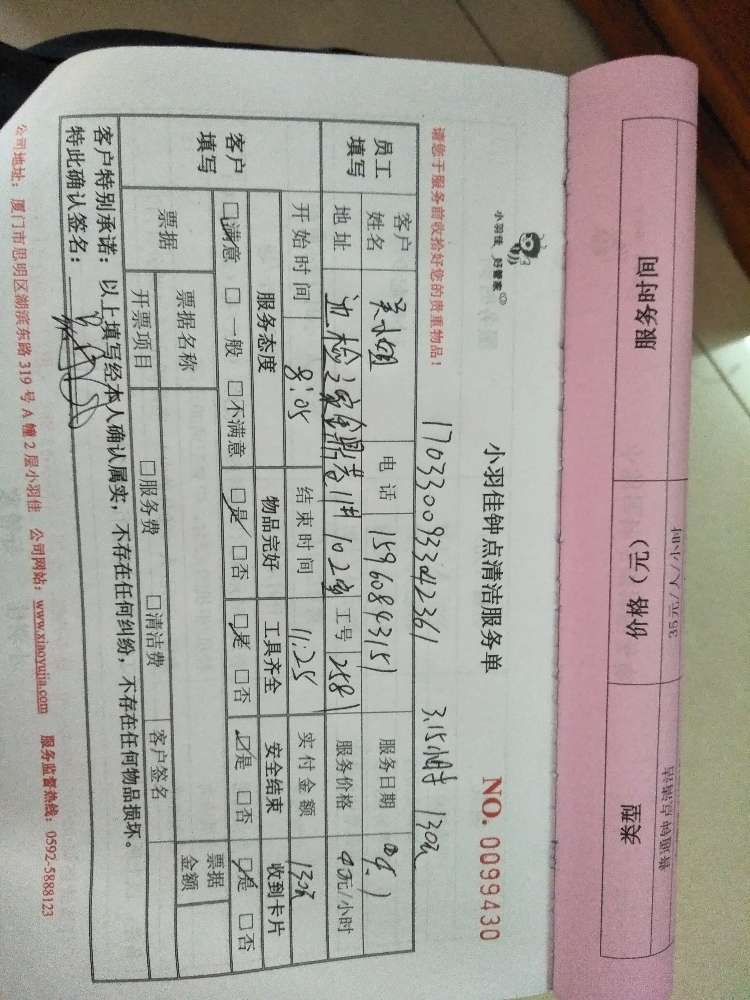 小羽佳 好管家
小羽佳钟点清洁服务单
NO. 0099430
请您于服务前收拾好您的贵重物品！
3.15小时 130元
员工填写
客户姓名 吴小姐 电话 15960843151 服务日期
地址 工号 2581 服务价格 40元/小时
客户填写
开始时间 8:05 结束时间 11:25 实付金额 130元
服务态度 物品完好 工具齐全 安全结束 收到卡片
☑满意 □一般 □不满意 ☑是 □否 ☑是 □否 ☑是 □否 ☑是 □否
票据 票据名称 票据金额
开票项目 □服务费 □清洁费 客户签名
客户特别承诺：以上填写经本人确认属实，不存在任何纠纷，不存在任何物品损坏。
特此确认签名：
公司地址：厦门市思明区湖滨东路 319 号 A 幢 2 层小羽佳 公司网站：www.xiaoyujia.com 服务监督热线：0592-5888123
服务时间 价格（元） 类型
35元/人/小时